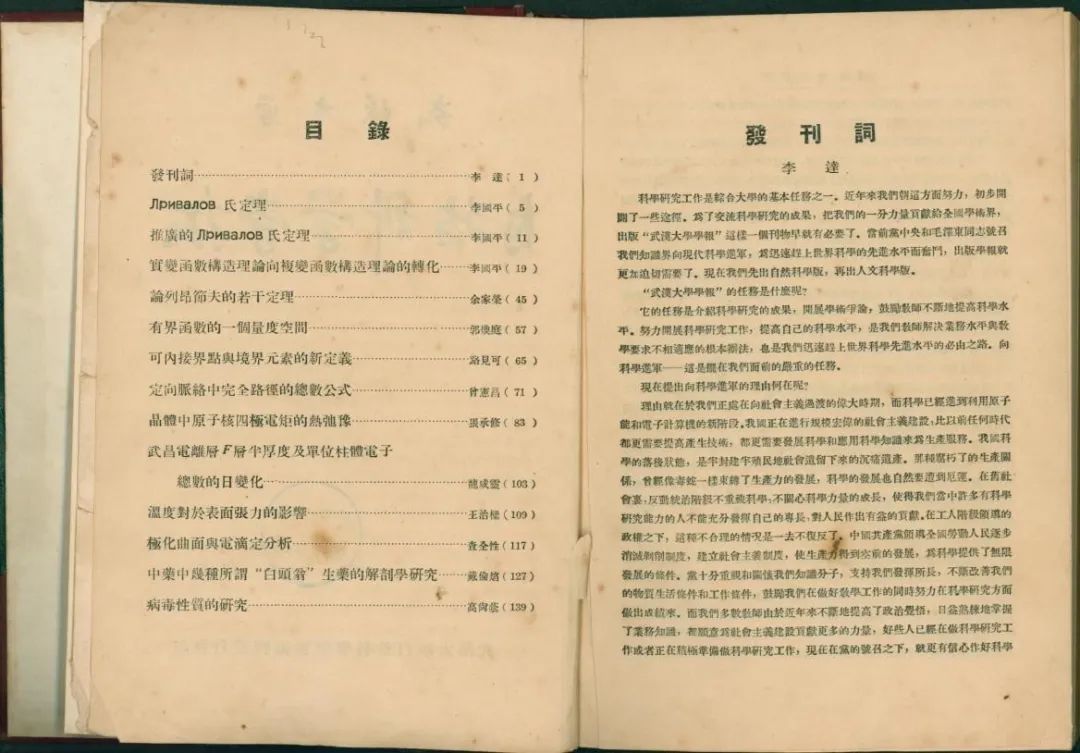 目錄
發刊詞……李達(1)
Лривалов 氏定理……李國平(5)
推廣的Лривалов 氏定理……李國平(11)
實變函數構造理論向複變函數構造理論的轉化……李國平(19)
論列昂節夫的若干定理……余家榮(45)
有界函數的一個量度空間……郭(57)
可內接界點與境界元素的新定義……路見可(65)
定向脈絡中完全路徑的總數公式……曾憲昌(71)
晶體中原子核四極電矩的熱弛豫……張承修(83)
武昌電離層F層半厚度及單位柱體電子
總數的日變化……龍咸靈(103)
溫度對於表面張力的影響……王治樑(109)
極化曲面與電滴定分析……查全性(117)
中藥中幾種所謂“白頭翁”生藥的解剖學研究……戴倫焰(127)
病毒性質的研究……高尙蔭(139)
發刊詞
李達
科學研究工作是綜合大學的基本任務之一。近年來我們朝這方面努力，初步開
闢了一些途徑。爲了交流科學研究的成果，把我們的一分力量貢獻給全國學術界，
出版“武漢大學學報”這樣一個刊物早就有必要了。當前黨中央和毛澤東同志號召
我們知識界向現代科學進軍，爲迅速趕上世界科學的先進水平而奮鬥，出版學報就
更加迫切需要了。現在我們先出自然科學版，再出人文科學版。
“武漢大學學報”的任務是什麼呢？
它的任務是介紹科學研究的成果，開展學術爭論，鼓勵敎師不斷地提高科學水
平。努力開展科學研究工作，提高自己的科學水平，是我們敎師解決業務水平與敎
學要求不相適應的根本辦法，也是我們迅速趕上世界科學先進水平的必由之路。向
科學進軍——這是擺在我們面前的嚴重的任務。
現在提出向科學進軍的理由何在呢？
理由就在於我們正處在向社會主義過渡的偉大時期，而科學已經進到利用原子
能和電子計算機的新階段。我國正在進行規模宏偉的社會主義建設，比以前任何時代
都更需要提高產生技術，都更需要發展科學和應用科學知識來爲生產服務。我國科
學的落後狀態，是半封建半殖民地社會遺留下來的沉痛遺產。那種腐朽了的生產關
係，曾經像毒蛇一樣束轉了生產力的發展，科學的發展也自然要遭到厄運。在舊社
會裏，反動統治階級不重視科學，不關心科學力量的成長，使得我們當中許多有科學
研究能力的人不能充分發揮自己的專長，對人民作出有益的貢獻。在工人階級領導的
政權之下，這種不合理的情況是一去不復返了。中國共產黨領導全國勞動人民逐步
消滅剥削制度，建立社會主義制度，使生產力得到空前的發展，爲科學提供了無限
發展的條件。黨十分重視和關懷我們知識分子，支持我們發揮所長，不斷改善我們
的物質生活條件和工作條件，鼓勵我們在做好敎學工作的同時努力在科學研究方面
做出成績來。而我們多數敎師由於近年來不斷地提高了政治覺悟，日益熟練地掌握
了業務知識，都願意爲社會主義建設貢獻更多的力量，好些人已經在做科學研究工
作或者正在積極準備做科學研究工作，現在在黨的號召之下，就更有信心作好科學